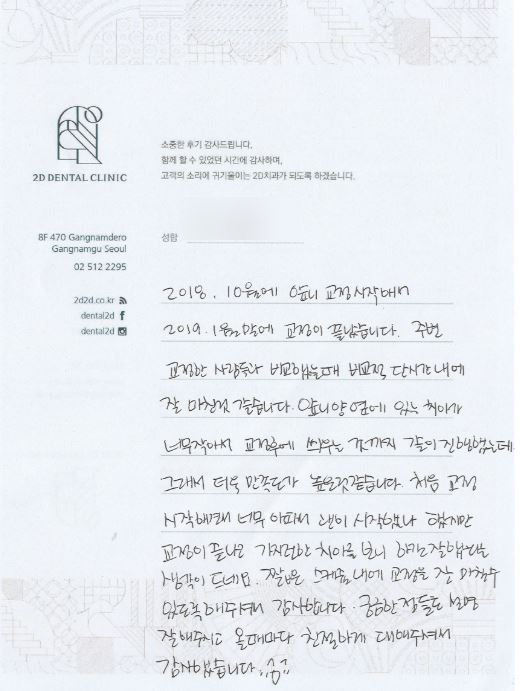 2D DENTAL CLINIC
소중한 후기 감사드립니다.
함께 할 수 있었던 시간에 감사하며,
고객의 소리에 귀기울이는 2D치과가 되도록 하겠습니다.
8F 470 Gangnamdero
Gangnamgu Seoul
02 512 2295
2d2d.co.kr
dental2d
dental2d
성함
2018. 10월에 앞니 교정시작해서
2019. 1월말에 교정이 끝났습니다. 주변
교정한 사람들과 비교했을때 비교적 단시간내에
잘 마친것 같습니다. 앞니양 옆에 있는 치아가
너무작아서 교정후에 씌우는 것까지 같이 진행했는데
그래서 더욱 만족도가 높은것같습니다. 처음 교정
시작할때 너무 아파서 괜히 시작했나 했지만
교정이 끝나고 가지런한 치아를 보니 하길잘했다는
생각이 드네요. 짧은 스케줄내에 교정을 잘 마칠수
있도록해주셔서 감사합니다. 궁금한점들도 설명
잘해주시고 올때마다 친절하게 대해주셔서
감사했습니다